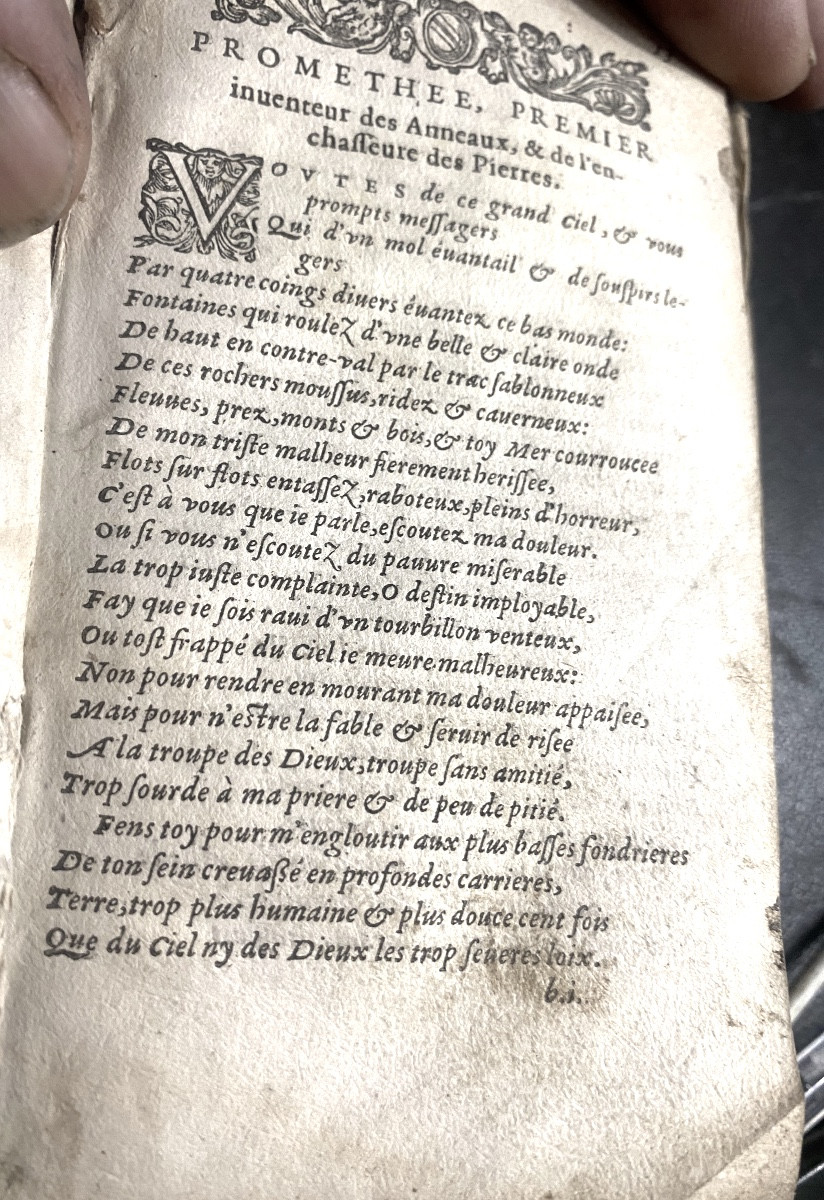 PROMETHEE, PREMIER
inuenteur des Anneaux, & de l'en-
chaſſeure des Pierres.
VOVTES de ce grand Ciel, & vous
prompts meſſagers
Qui d'vn mol éuantail & de ſouſpirs le-
gers
Par quatre coings diuers éuantez ce bas monde:
Fontaines qui roulez d'vne belle & claire onde
De haut en contre-val par le trac ſablonneux
De ces rochers mouſſus, ridez & cauerneux:
Fleuues, prez, monts & bois, & toy Mer courroucee
De mon triſte malheur fierement heriſſee,
Flots ſur flots entaſſez, raboteux, pleins d'horreur,
C'eſt à vous que ie parle, eſcoutez ma douleur.
Ou ſi vous n'eſcoutez du pauure miſerable
La trop iuſte complainte, O deſtin imployable,
Fay que ie ſois raui d'vn tourbillon venteux,
Ou toſt frappé du Ciel ie meure malheureux:
Non pour rendre en mourant ma douleur appaiſee,
Mais pour n'eſtre la fable & ſeruir de riſee
A la troupe des Dieux, troupe ſans amitié,
Trop ſourde à ma priere & de peu de pitié.
Fens toy pour m'engloutir aux plus baſſes fondrieres
De ton ſein creuaſſé en profondes carrieres,
Terre, trop plus humaine & plus douce cent fois
Que du Ciel ny des Dieux les trop ſeueres loix.
b.i.